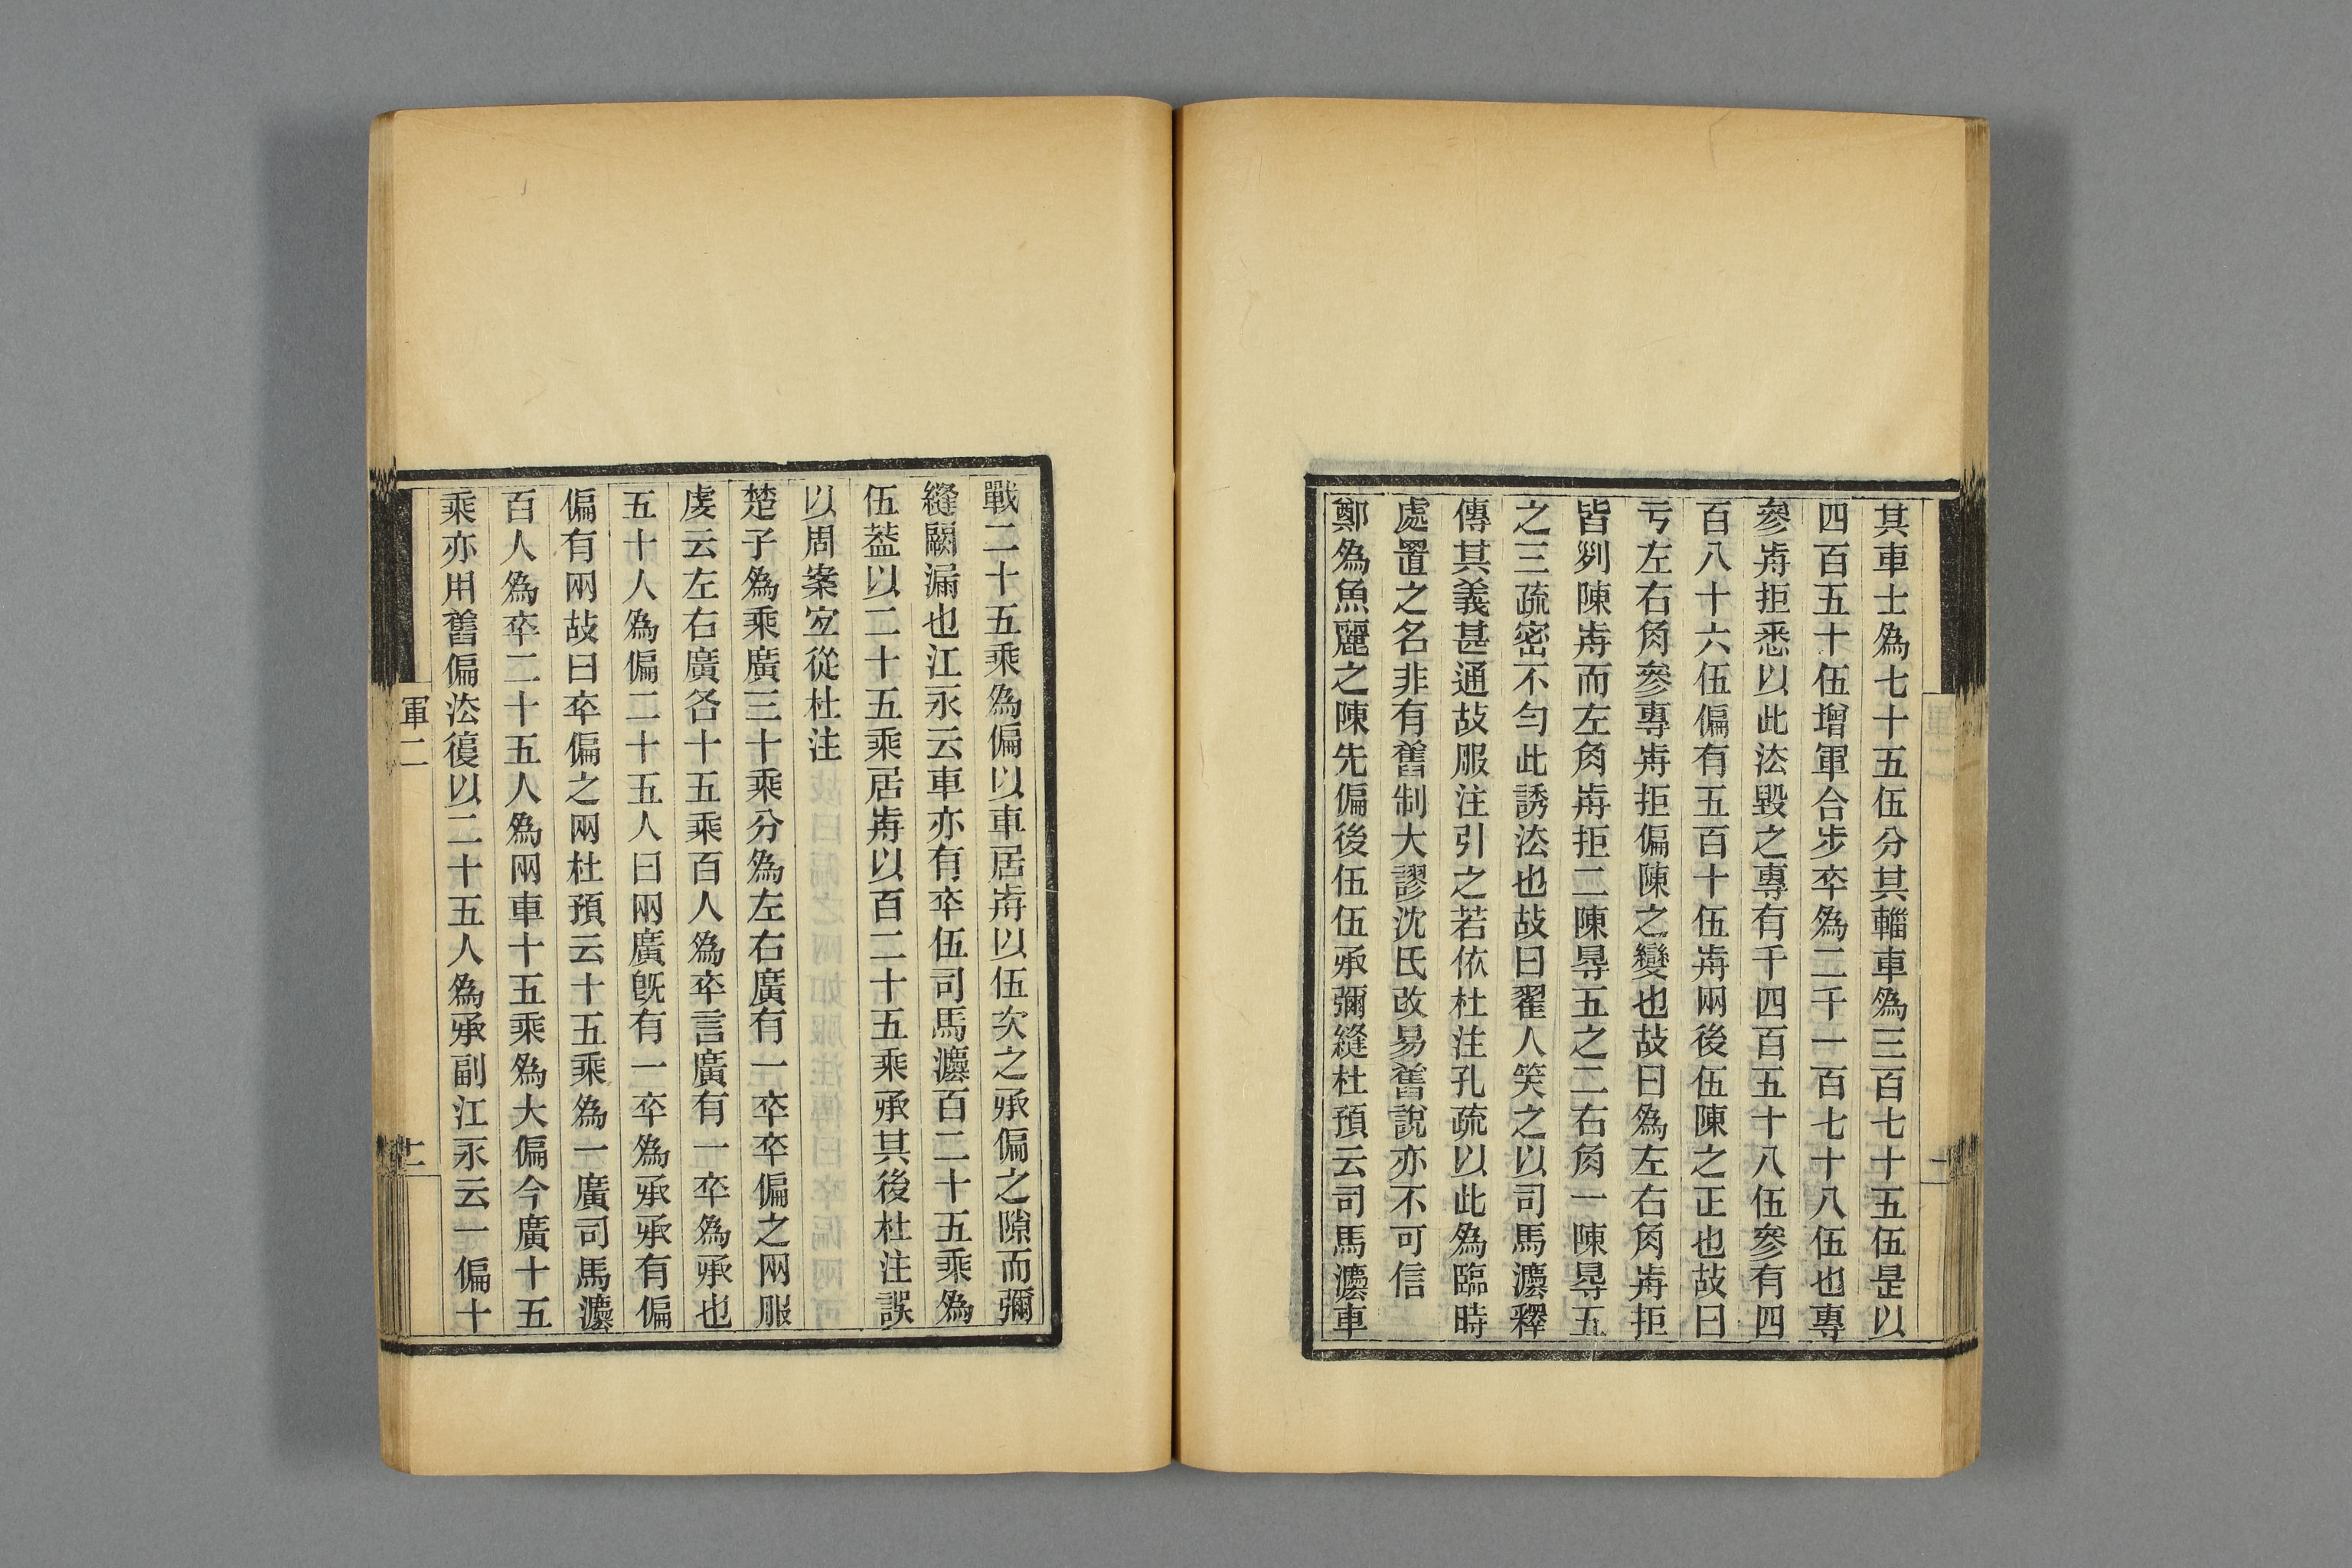 其車士為七十五伍分其輜車為三百七十五伍是以
四百五十伍增軍合步卒為二千一百七十八伍也專
參歬拒悉以此法毀之專有千四百五十八伍參有四
百八十六伍偏有五百十伍歬兩後伍陳之正也故曰
亏左右角參專歬拒偏陳之變也故曰為左右角歬拒
皆𠛱陳歬而左角歬拒二陳㝵五之二右角一陳㝵五
之三疏密不勻此誘法也故曰翟人笑之以司馬灋釋
傳其義甚通故服注引之若依杜注孔疏以此為臨時
處置之名非有舊制大謬沈氏改易舊說亦不可信
鄭為魚麗之陳先偏後伍伍承彌縫杜預云司馬灋車
戰二十五乘為偏以車居歬以伍次之承偏之隙而彌
縫闕漏也江永云車亦有卒伍司馬灋百二十五乘為
伍葢以二十五乘居歬以百二十五乘承其後杜注誤
以周案宐從杜注
楚子為乘廣三十乘分為左右廣有一卒卒偏之兩服
虔云左右廣各十五乘百人為卒言廣有一卒為承也
五十人為偏二十五人曰兩廣旣有一卒為承承有偏
偏有兩故曰卒偏之兩杜預云十五乘為一廣司馬灋
百人為卒二十五人為兩車十五乘為大偏今廣十五
乘亦用舊偏法復以二十五人為承副江永云一偏十
軍二
十二